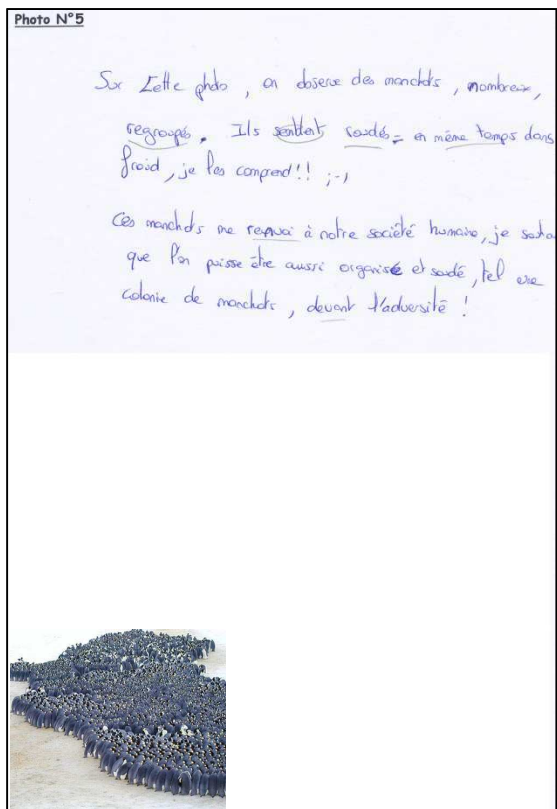 Photo N°5
Sur Cette photo, on observe des manchots, nombreux,
regroupés. Ils semblent soudés = en même temps dans
froid, je les comprend!! ;-)
Ces manchots me renvoi à notre société humaine, je
que l'on puisse être aussi organisé et soudé, tel une
colonie de manchots, devant l'adversité !